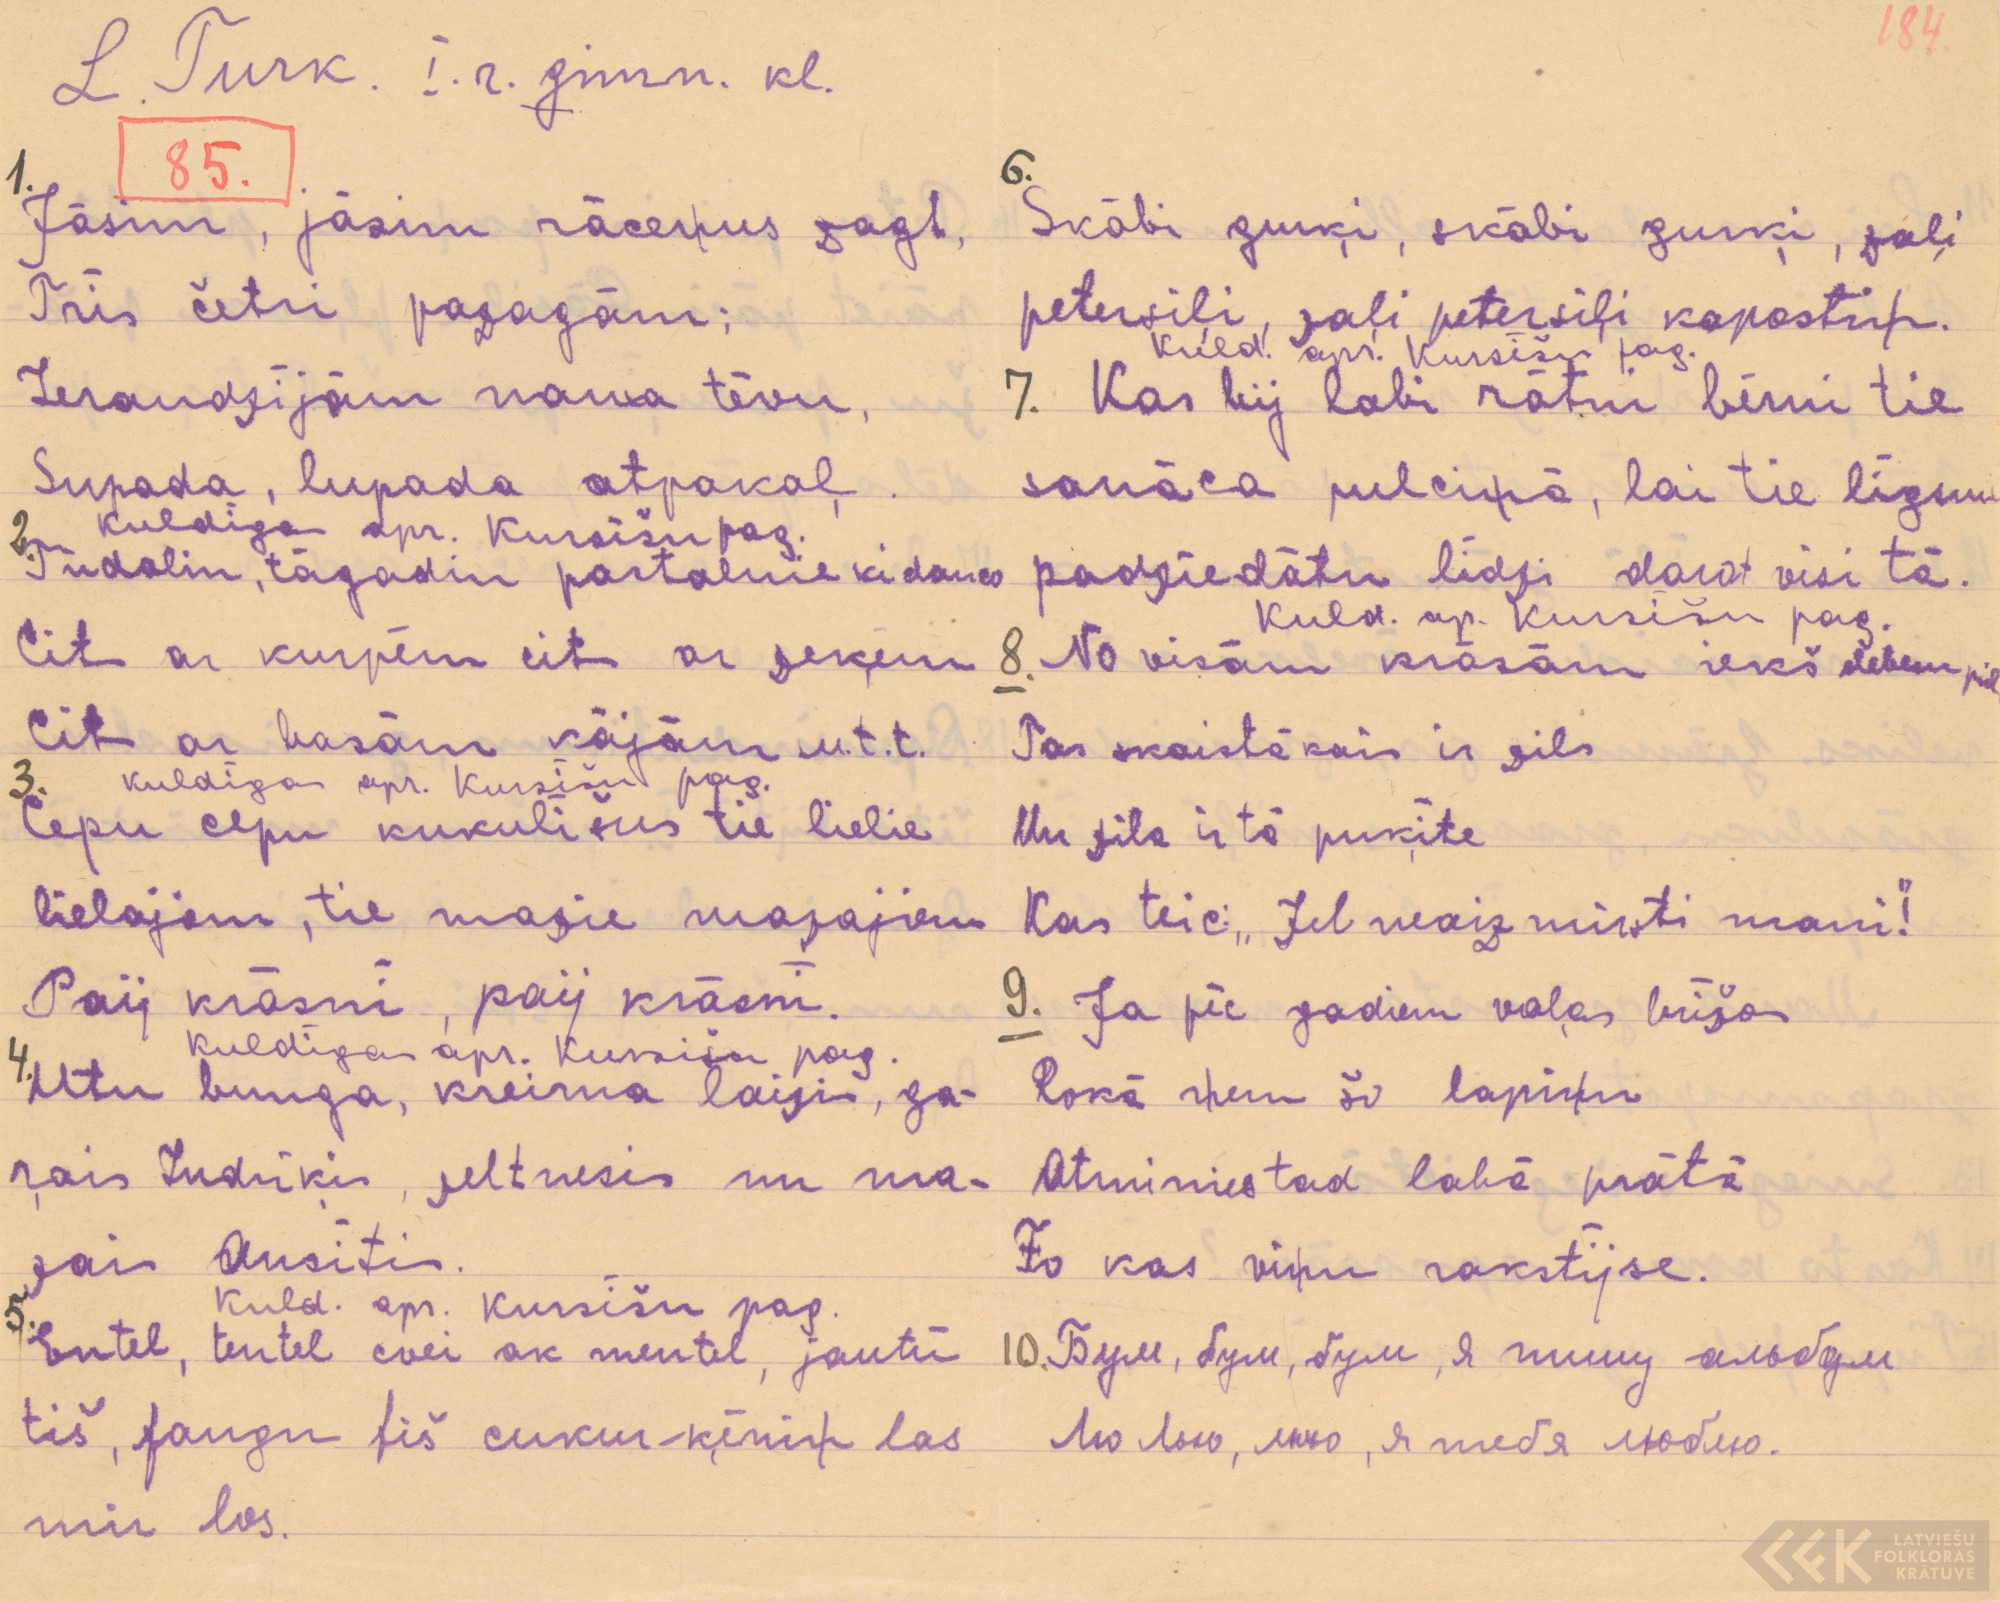 184.
L. Turk. I. r. gimn. kl.
85.
1.
Jāsim, jāsim rāceņus zagt,
Trīs četri pazagām;
Ieraudzījām nama tēvu,
Supada, lupada atpakaļ.
Kuldīgas apr. Kursīšu pag.
2. Tūdalin, tāgadin pastalnieki dancos
Cit ar kurpēm cit ar zeķēm
Cit ar basām kājām u.t.t.
Kuldīgas apr. Kursīšu pag.
3. Cepu cepu kukulīšus tie lielie
lielajiem, tie mazie mazajiem
Paij krāsnī, paij krāsnī.
Kuldīgas apr. Kursīšu pag.
4. Utu bunga, kreima laizis, ga-
ŗais Indriķis, zeltnesis un ma-
zais Ansītis.
Kuld. apr. Kursīšu pag.
5. Entel, tentel cvei ak mentel, jautū
tiš, fangu fiš cukur-ķēniņ las
mir los.
6.
Skābi gurķi, skābi gurķi, zaļi
petersiļi, zaļi petersiļi kapostiņ.
Kuld. apr. Kursīšu pag.
7. Kas bij labi rātni bērni tie
sanāca pulciņā, lai tie līgsmu
padziedātu līdzi darat visi tā.
Kuld. ap. Kursīšu pag.
8. No visām krāsām iekš debem pil
Tas skaistākais ir zils
Un zila ir tā puķīte
Kas teic: „Jel neaizmirsti mani!"
9. Ja pēc gadiem vaļas brīžos
Rokā ņem šo lapiņu
Atminies tad labā prātā
To kas viņu rakstījse.
10. Бум, бум, бум, я пишу альбум
Лю лью, лью, я тебя люблю.
LATVIEŠU
FOLKLORAS
KRĀTUVE